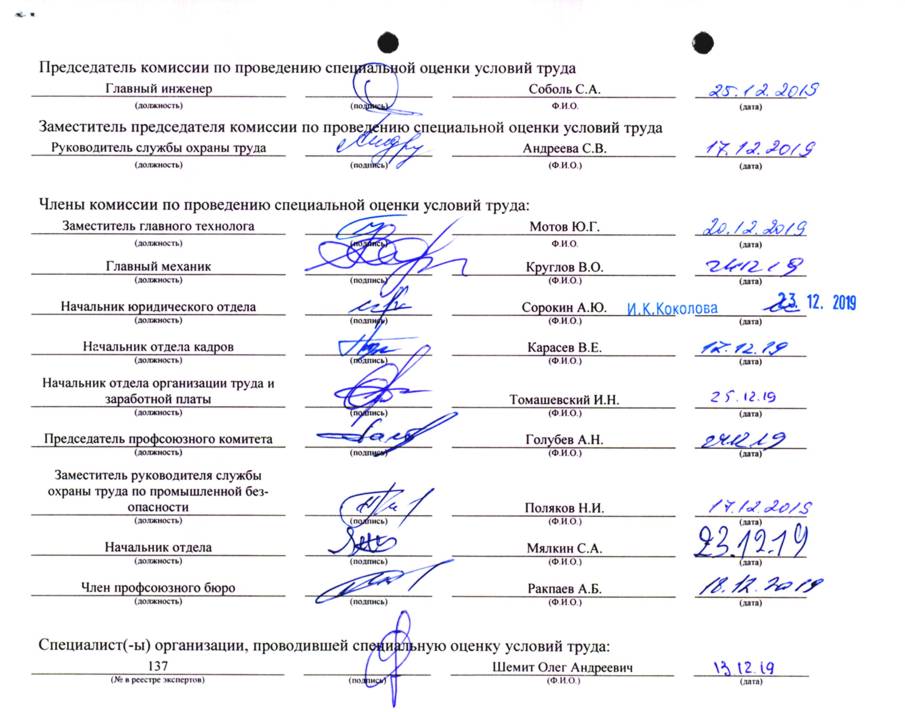 Председатель комиссии по проведению специальной оценки условий труда
Главный инженер Соболь С.А. 25.12.2019
(должность) (подпись) Ф.И.О. (дата)
Заместитель председателя комиссии по проведению специальной оценки условий труда
Руководитель службы охраны труда Андреева С.В. 17.12.2019
(должность) (подпись) (Ф.И.О.) (дата)
Члены комиссии по проведению специальной оценки условий труда:
Заместитель главного технолога Мотов Ю.Г. 20.12.2019
(должность) (подпись) Ф.И.О. (дата)
Главный механик Круглов В.О.
(должность) (подпись) (Ф.И.О.) (дата)
Начальник юридического отдела Сорокин А.Ю. И.К.Коколова 23. 12. 2019
(должность) (подпись) (Ф.И.О.) (дата)
Начальник отдела кадров Карасев В.Е. 17.12.19
(должность) (подпись) (Ф.И.О.) (дата)
Начальник отдела организации труда и
заработной платы Томашевский И.Н. 25.12.19
(должность) (подпись) (Ф.И.О.) (дата)
Председатель профсоюзного комитета Голубев А.Н.
(должность) (подпись) (Ф.И.О.) (дата)
Заместитель руководителя службы
охраны труда по промышленной без-
опасности Поляков Н.И. 17.12.2019
(должность) (подпись) (Ф.И.О.) (дата)
Начальник отдела Мялкин С.А. 23.12.19
(должность) (подпись) (Ф.И.О.) (дата)
Член профсоюзного бюро Ракпаев А.Б. 18.12.2019
(должность) (подпись) (Ф.И.О.) (дата)
Специалист(-ы) организации, проводившей специальную оценку условий труда:
137 Шемит Олег Андреевич 13.12.19
(№ в реестре экспертов) (подпись) (Ф.И.О.) (дата)